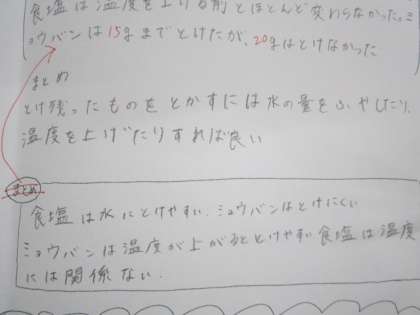 食塩は温度を上げる前とほとんど変わらなかった。ミ
ョウバンは15gまでとけたが、20gはとけなかった
まとめ
とけ残ったものをとかすには水の量をふやしたり、
温度を上げたりすれば良い
まとめ
食塩は水にとけやすい.ミョウバンはとけにくい
ミョウバンは温度が上がるととけやすい食塩は温度
には関係ない.